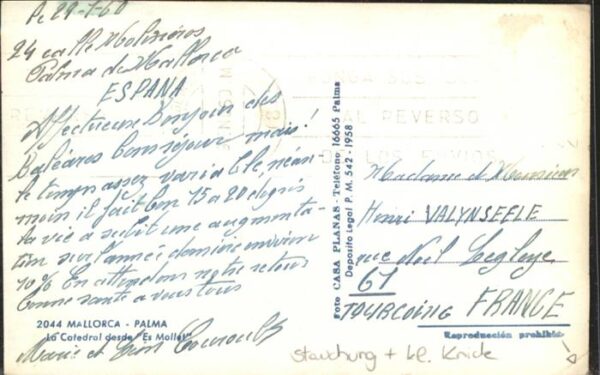 Le 29-1-60
24 calle Molineros
Palma de Mallorca
ESPANA
Affectueux Bonjour des
Baléares bon séjour mais!
le temps assez variable, néan
moin il fait bon 15 a 20 degrés
la vie a subit une augmenta-
tion sur l'année dernière environ
10% En attendons notre retour
bonne santé a vous tous
2044 MALLORCA - PALMA
La Catedral desde "Es Mollet"
Marie et Léon
Foto CASA PLANAS - Teléfono 16665 Palma
Deposito Legal P. M. 542 - 1958
PONGA SUS
AL REVERSO
DE LOS ENVIOS
Madame et Monsieur
Henri VALYNSEELE
rue Noël Legleye
61
TOURCOING FRANCE
Reproducción prohibida
Stauchung + kl. Knicke